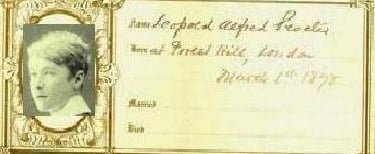 Name Leopold Alfred Proctor
Born at Forest Hill, London
March 1st 1878
Married
Died